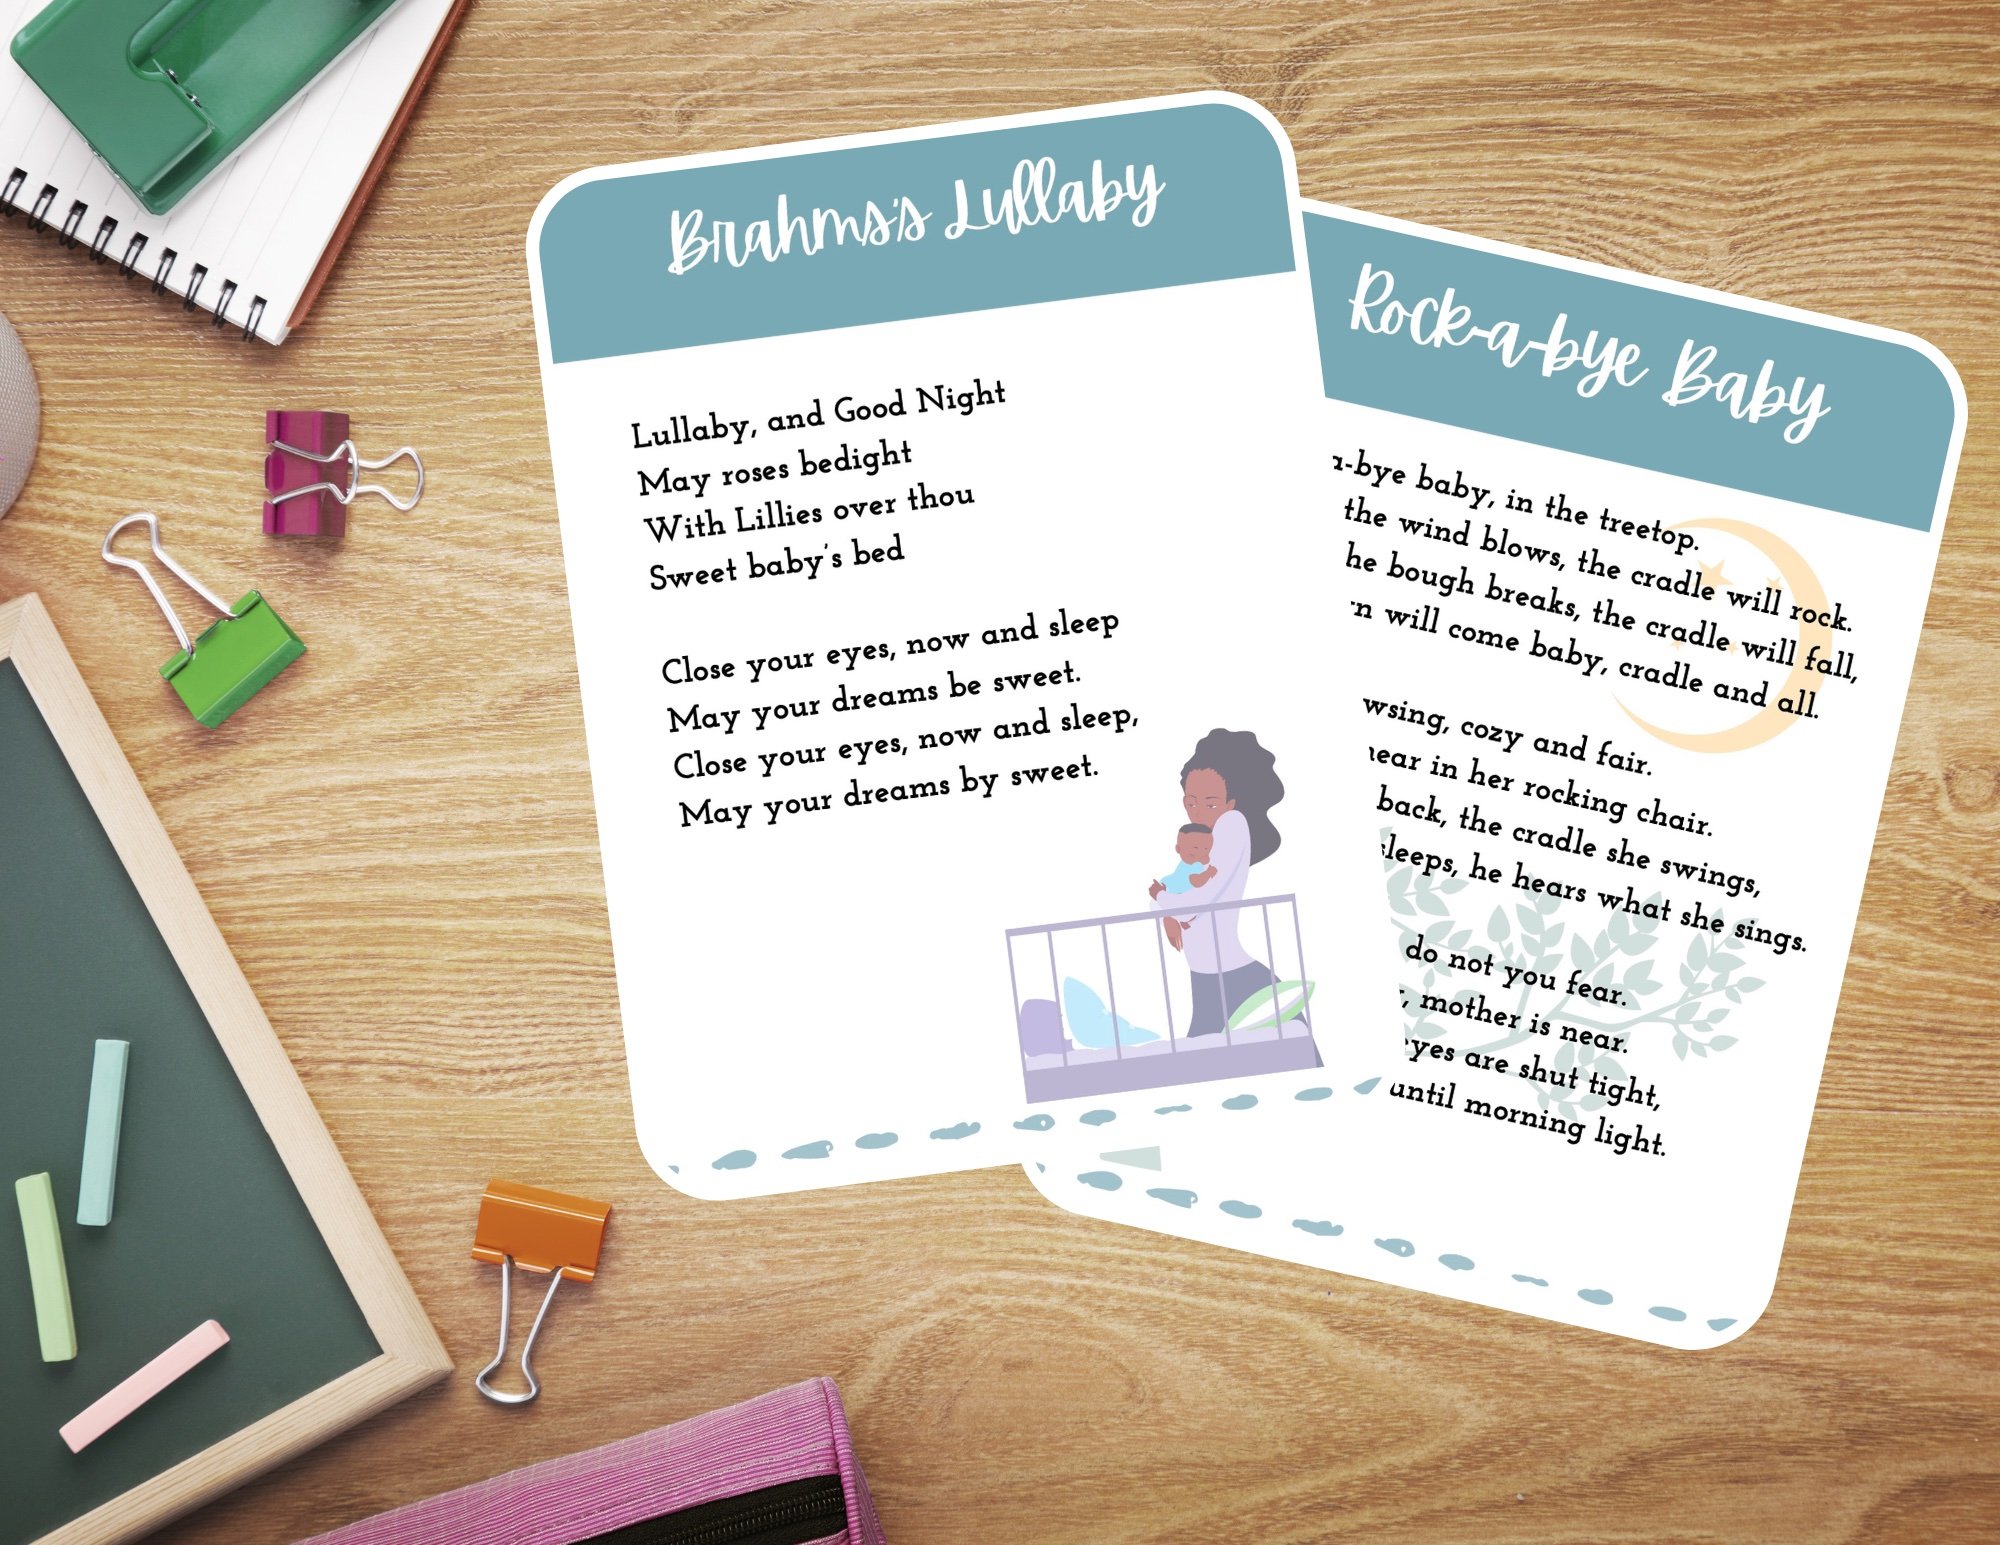 Brahms's Lullaby
Lullaby, and Good Night
May roses bedight
With Lillies over thou
Sweet baby's bed
Close your eyes, now and sleep
May your dreams be sweet.
Close your eyes, now and sleep,
May your dreams by sweet.
Rock-a-bye Baby
a-bye baby, in the treetop.
the wind blows, the cradle will rock.
he bough breaks, the cradle will fall,
n will come baby, cradle and all.
wsing, cozy and fair.
near in her rocking chair.
back, the cradle she swings,
sleeps, he hears what she sings.
do not you fear.
, mother is near.
eyes are shut tight,
until morning light.